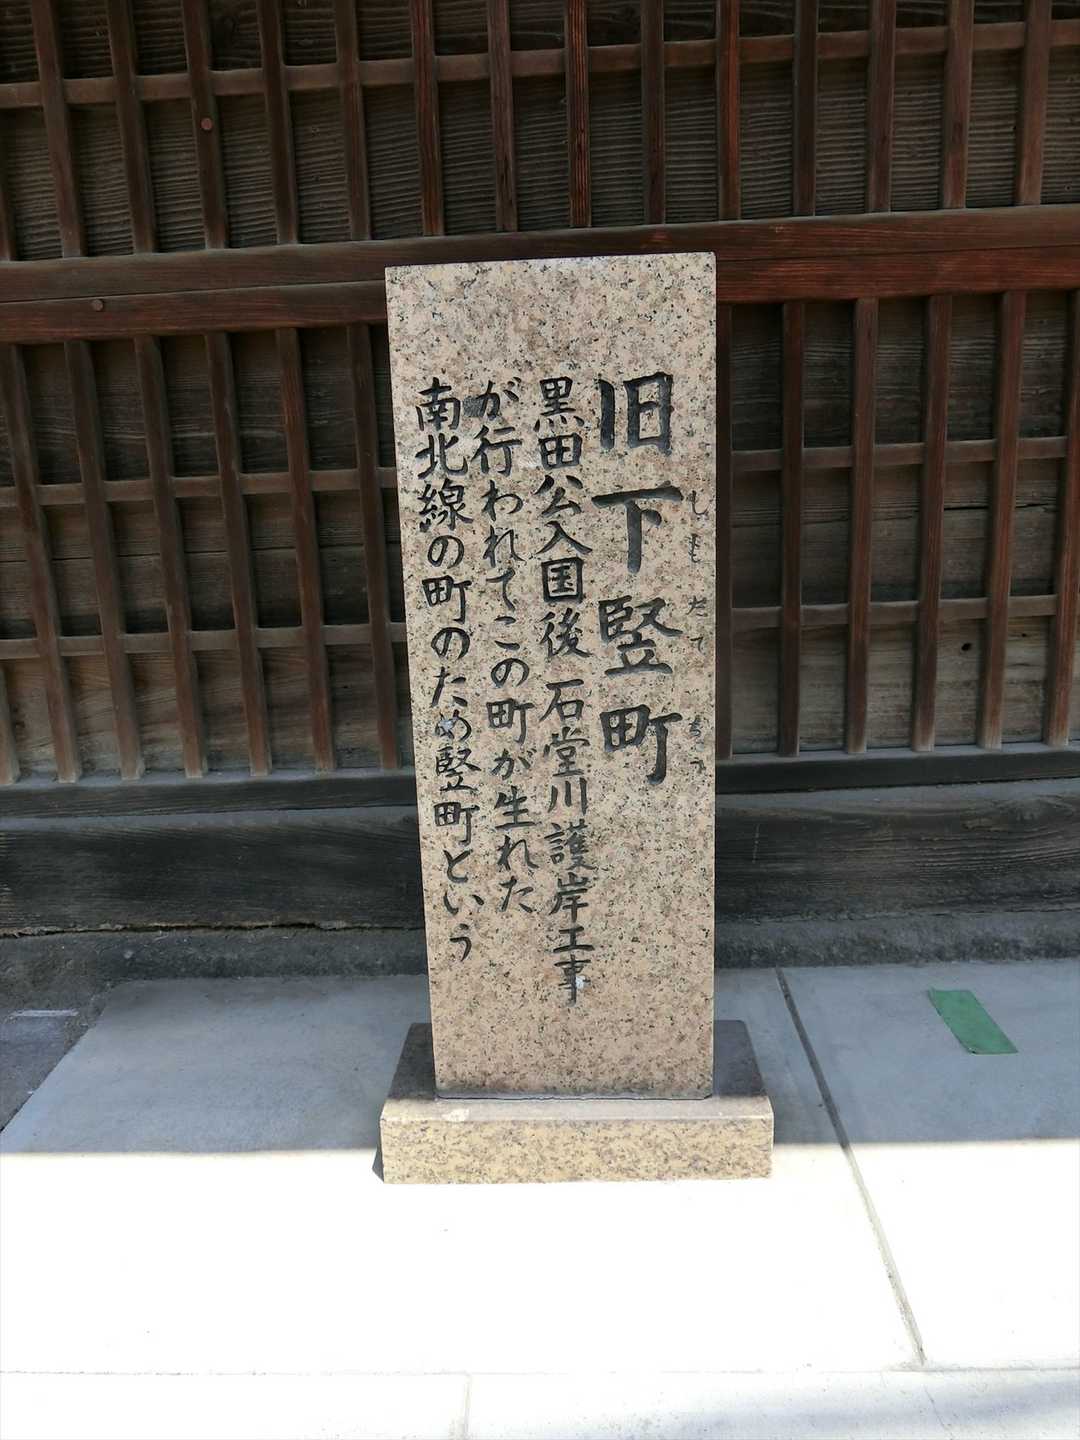 旧下竪町
しもたてちょう
黒田公入国後石堂川護岸工事
が行われてこの町が生れた
南北線の町のため竪町という